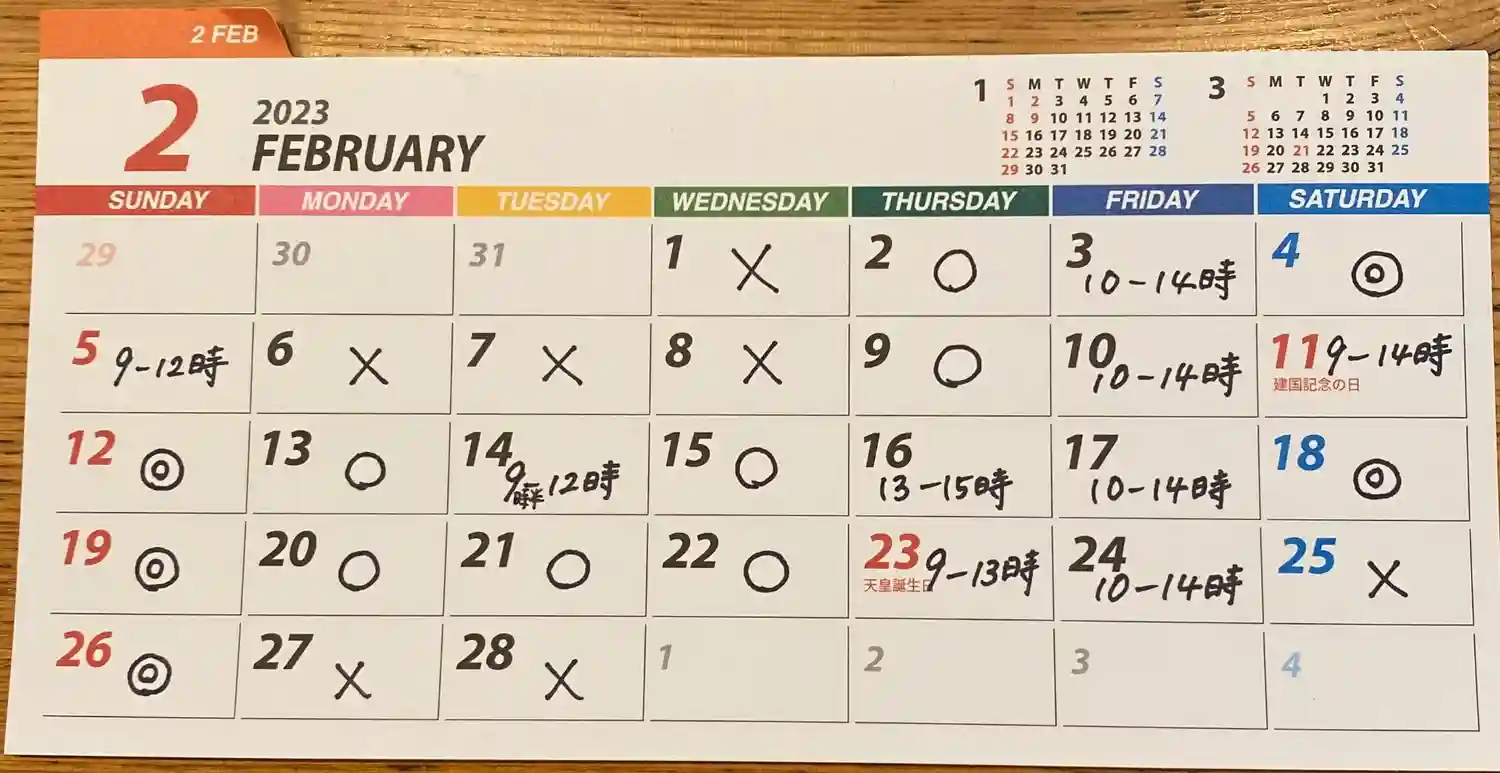 2 FEB
2 2023 FEBRUARY
1
S M T W T F S
1 2 3 4 5 6 7
8 9 10 11 12 13 14
15 16 17 18 19 20 21
22 23 24 25 26 27 28
29 30 31
3
S M T W T F S
1 2 3 4
5 6 7 8 9 10 11
12 13 14 15 16 17 18
19 20 21 22 23 24 25
26 27 28 29 30 31
SUNDAY MONDAY TUESDAY WEDNESDAY THURSDAY FRIDAY SATURDAY
29 30 31 1 × 2 ○ 3 10-14時 4 ◎
5 9-12時 6 × 7 × 8 × 9 ○ 10 10-14時 11 9-14時
建国記念の日
12 ◎ 13 ○ 14 9時半12時 15 ○ 16 13-15時 17 10-14時 18 ◎
19 ◎ 20 ○ 21 ○ 22 ○ 23 9-13時 24 10-14時 25 ×
天皇誕生日
26 ◎ 27 × 28 × 1 2 3 4